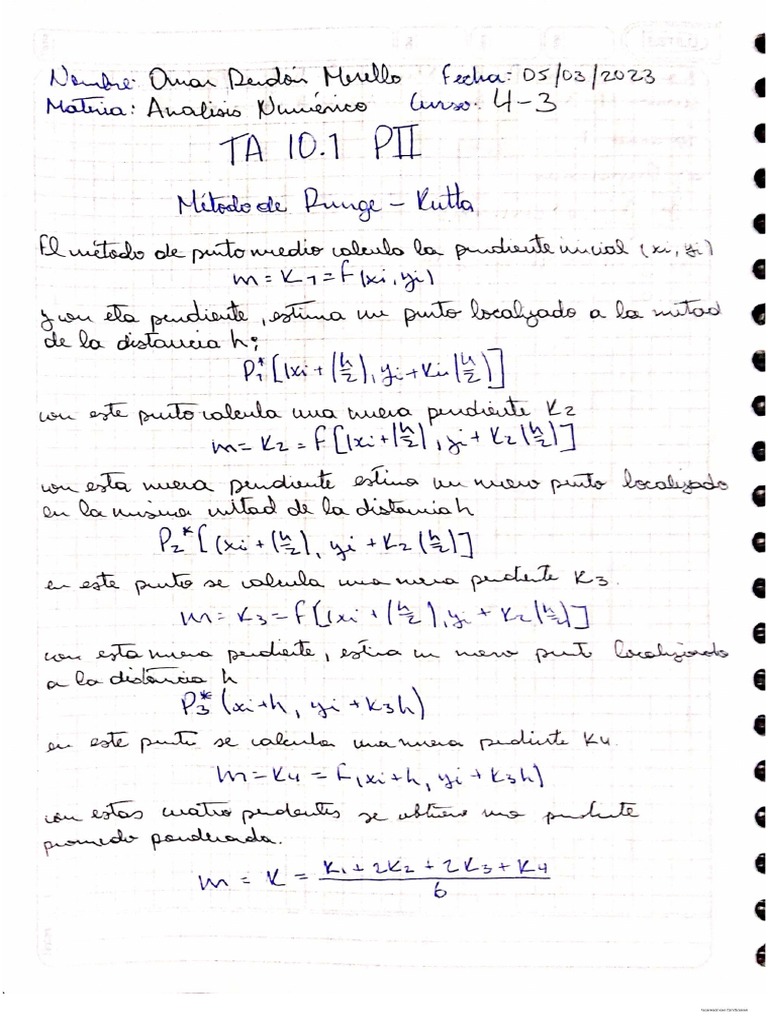 Nombre: Omar Rendón Merello Fecha: 05/03/2023
Materia: Analisis Numérico Curso: 4-3
TA 10.1 PII
Método de Runge - Kutta
El método de punto medio calcula la pendiente inicial (xi, yi)
m = K1 = f(xi, yi)
y con eta pendiente, estima un punto localizado a la mitad
de la distancia h;
P1* [(xi + (h/2), yi + Ki (h/2)]
con este punto calcula una nueva pendiente K2
m = K2 = f [(xi + (h/2), yi + K2 (h/2)]
con esta nueva pendiente estima un nuevo punto localizado
en la misma mitad de la distancia h
P2* [(xi + (h/2), yi + K2 (h/2)]
en este punto se calcula una nueva pendiente K3.
m = K3 = f [(xi + (h/2), yi + K2 (h/2)]
con esta nueva pendiente, estima un nuevo punto localizado
a la distancia h
P3* (xi+h, yi + K3h)
en este punto se calcula una nueva pendiente K4.
m = K4 = f(xi+h, yi + K3h)
con estas cuatro pendientes se obtiene una pendiente
promedio ponderada.
m = K = K1 + 2K2 + 2K3 + K4 / 6